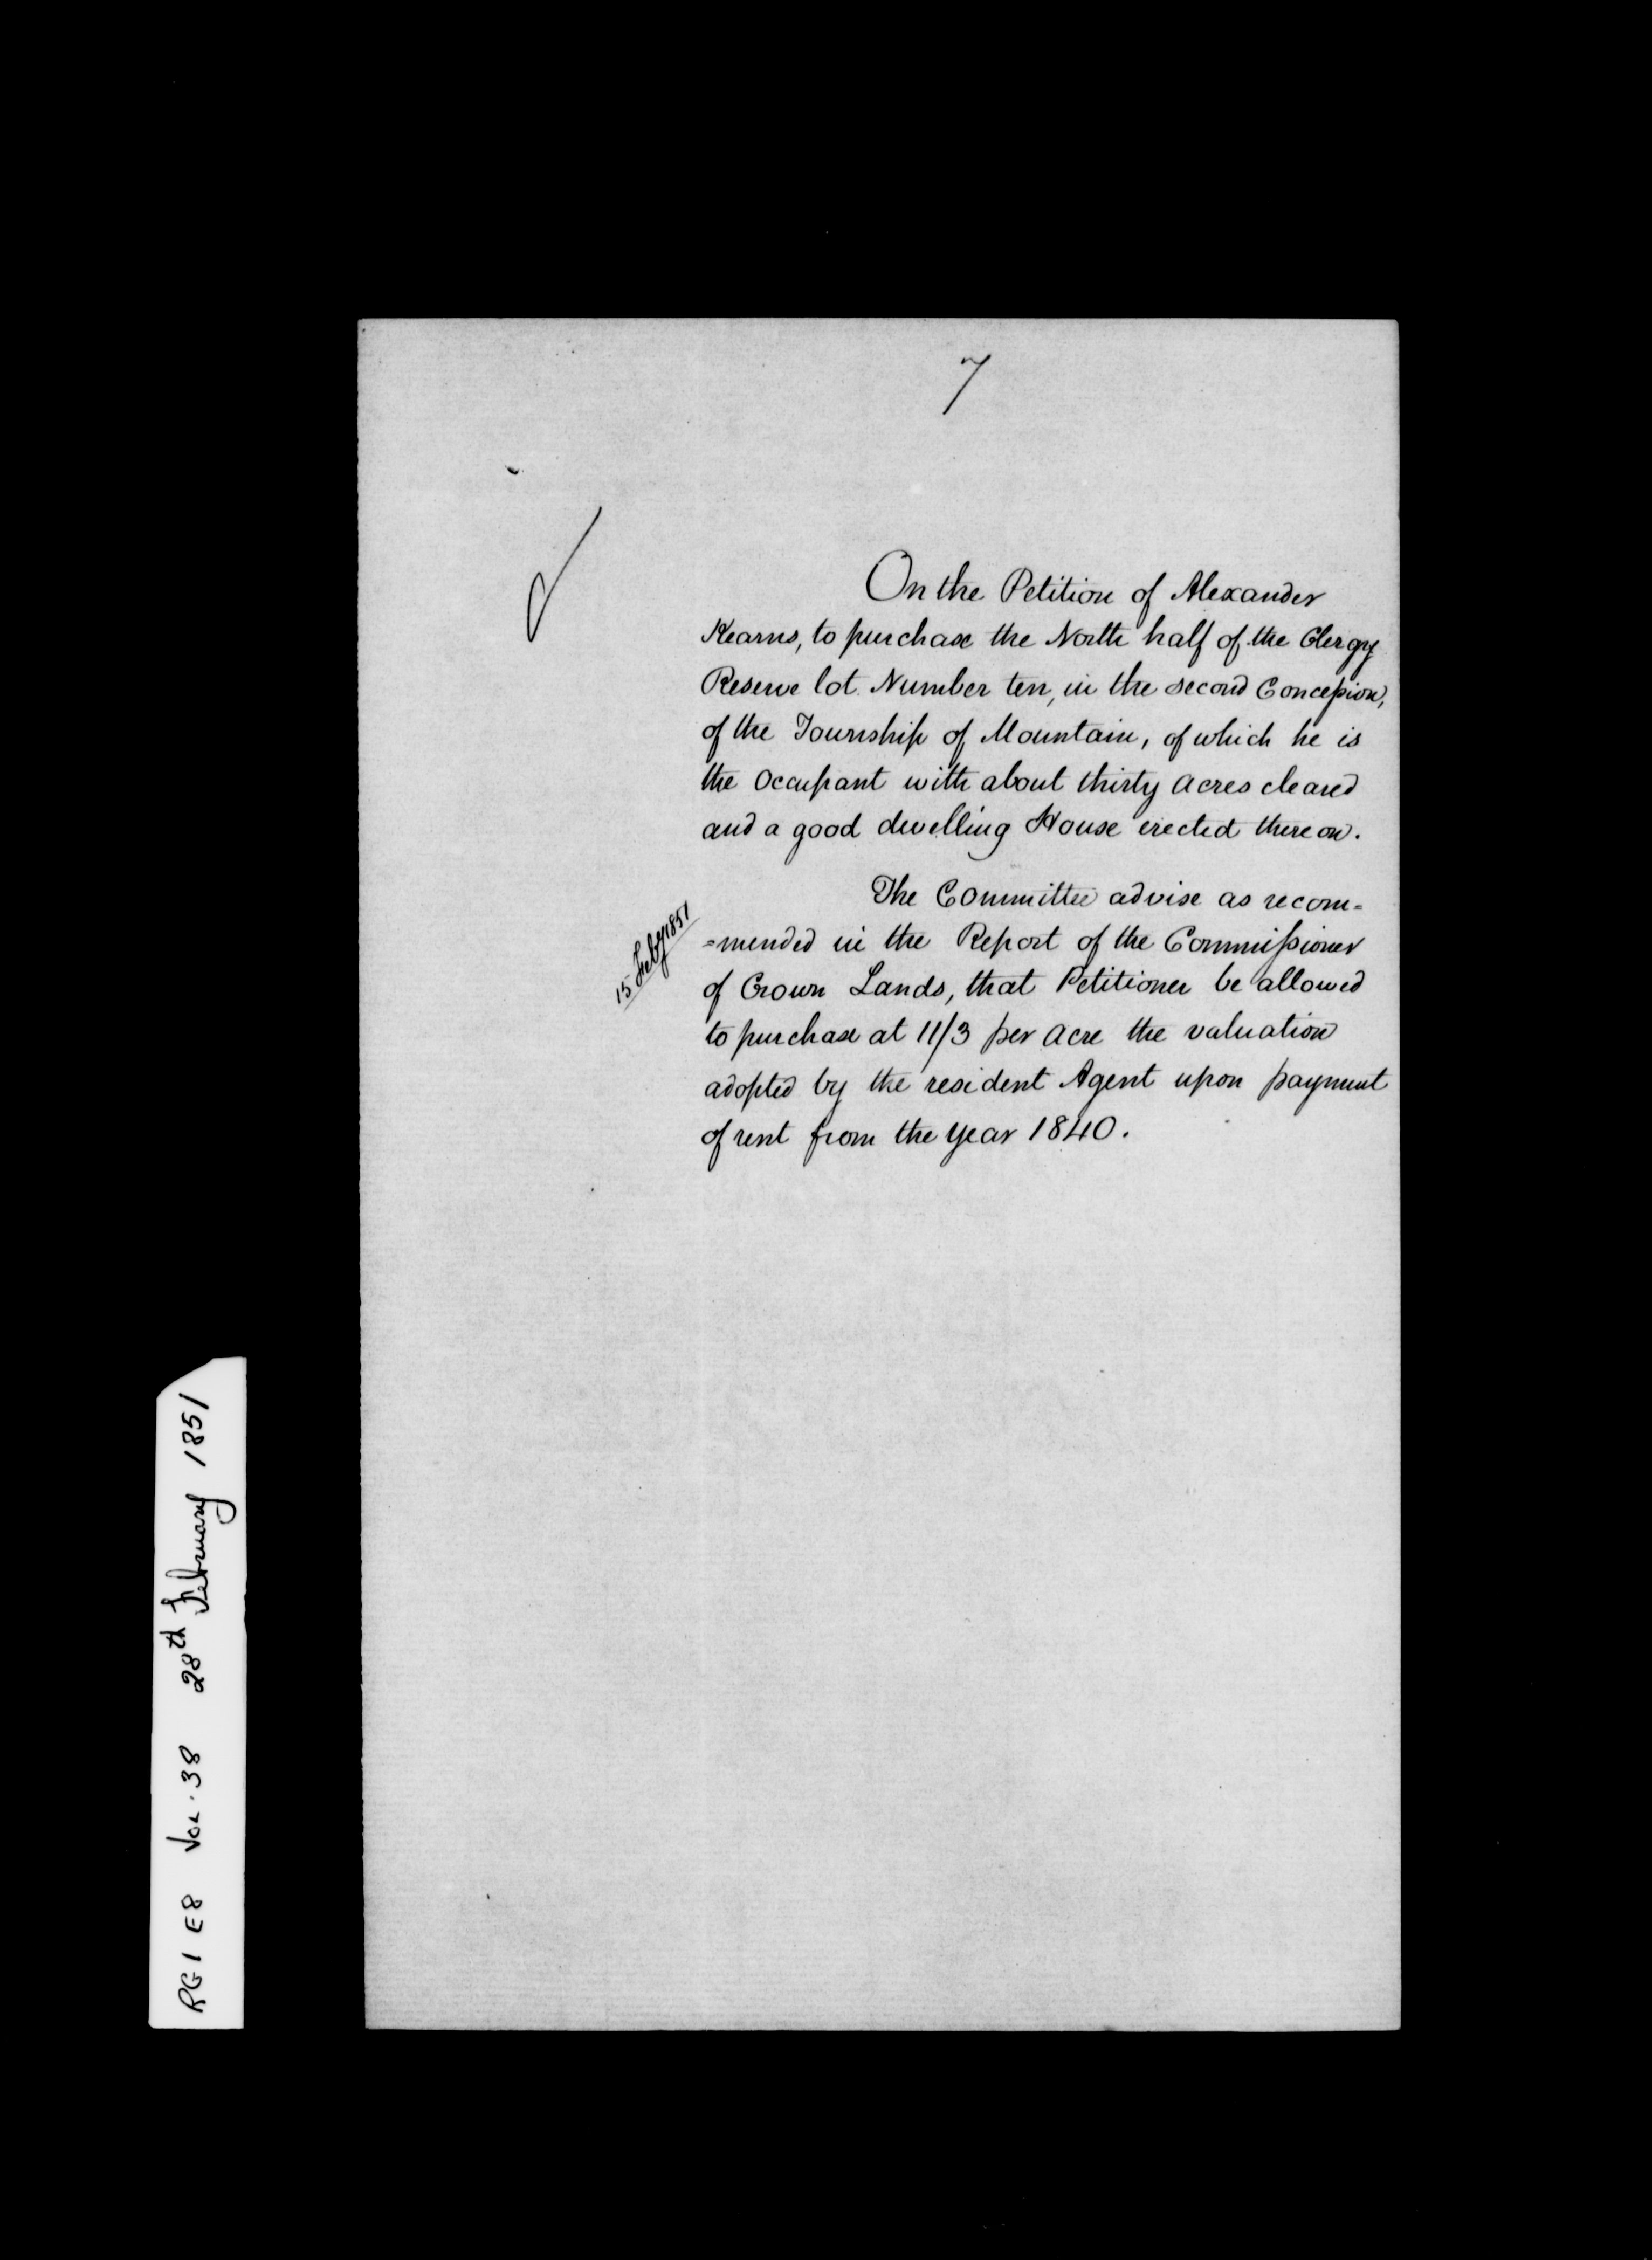 7
On the Petition of Alexander
Kearns, to purchase the North half of the Clergy
Reserve lot Number ten, in the second Concession,
of the Township of Mountain, of which he is
the Occupant with about thirty Acres cleared
and a good dwelling House erected thereon.
The Committee advise as recom=
15 Feby 1851
=mended in the Report of the Commissioner
of Crown Lands, that Petitioner be allowed
to purchase at 11/3 per Acre the valuation
adopted by the resident Agent upon payment
of rent from the Year 1840.
RG1 E8 VOL. 38 28th February 1851